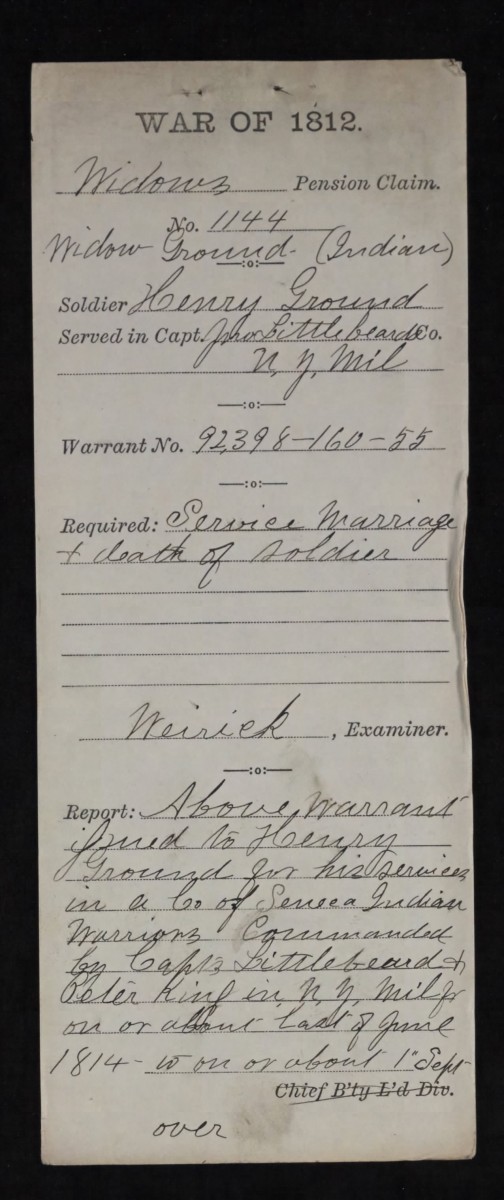 WAR OF 1812.
Widows Pension Claim.
No. 1144
Widow Ground (Indian)
—:o:—
Soldier Henry Ground
Served in Capt. Jno Littlebeard Co.
N. Y. Mil
—:o:—
Warrant No. 92398-160-55
—:o:—
Required: Service Marriage
+ death of soldier
Weirick, Examiner.
—:o:—
Report: Above Warrant
issued to Henry
Ground for his services
in a Co of Seneca Indian
Warriors Commanded
by Capts Littlebeard +
Peter King in N. Y. Mil fr
on or about last of June
1814 - to on or about 1" Sept
Chief B'ty L'd Div.
over